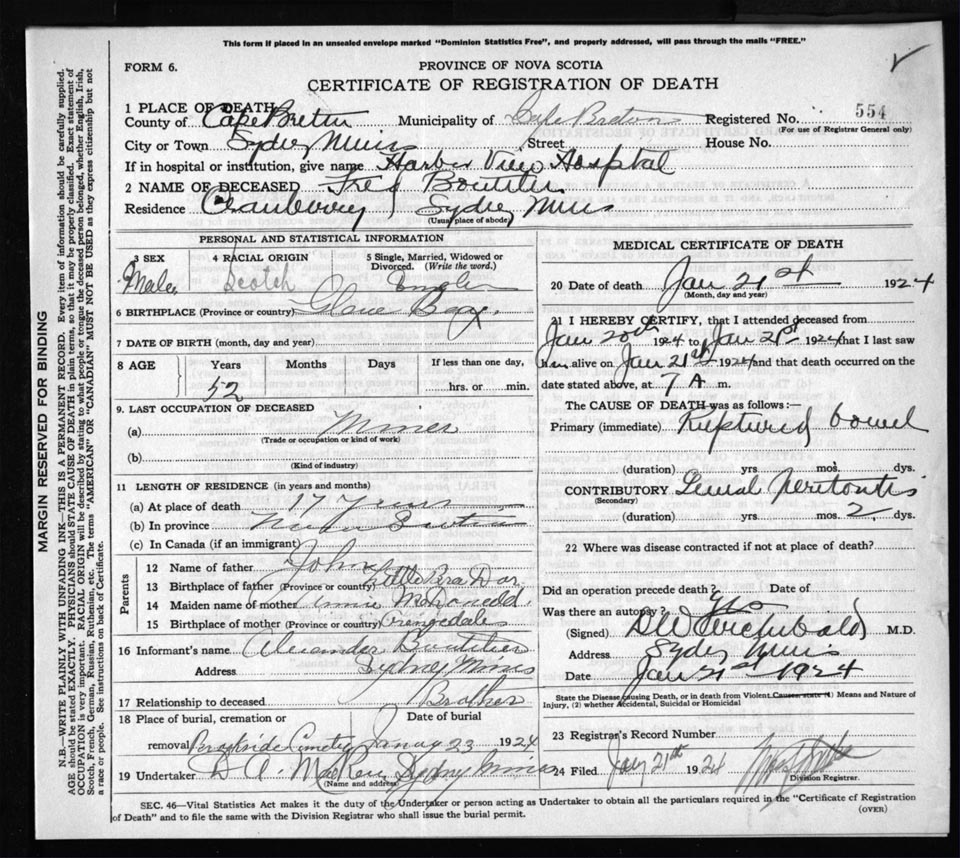 This form if placed in an unsealed envelope marked "Dominion Statistics Free", and properly addressed, will pass through the mails "FREE."
FORM 6.
PROVINCE OF NOVA SCOTIA
CERTIFICATE OF REGISTRATION OF DEATH
1 PLACE OF DEATH
County of Cape Breton Municipality of Cape Breton Registered No. 554
(For use of Registrar General only)
City or Town Sydney Mines Street House No.
If in hospital or institution, give name Harbor View Hospital
2 NAME OF DECEASED Boutilier
Residence Cranberry Sydney Mines
(Usual place of abode)
PERSONAL AND STATISTICAL INFORMATION
3 SEX 4 RACIAL ORIGIN 5 Single, Married, Widowed or Divorced. (Write the word.)
Male Scotch Single
6 BIRTHPLACE (Province or country) Glace Bay.
7 DATE OF BIRTH (month, day and year)
8 AGE Years Months Days If less than one day,
52 hrs. or min.
9. LAST OCCUPATION OF DECEASED
(a) Miner
(Trade or occupation or kind of work)
(b)
(Kind of industry)
11 LENGTH OF RESIDENCE (in years and months)
(a) At place of death 17 Years
(b) In province Nova Scotia
(c) In Canada (if an immigrant)
Parents
12 Name of father John
13 Birthplace of father (Province or country) Little Bras D'or
14 Maiden name of mother Annie McDonald
15 Birthplace of mother (Province or country) Orangedale
16 Informant's name Alexander Boutilier
Address Sydney Mines
17 Relationship to deceased Brother
18 Place of burial, cremation or Date of burial
removal Brookside Cemetery January 23 1924
19 Undertaker D A Sydney Mines
(Name and address)
MEDICAL CERTIFICATE OF DEATH
20 Date of death Jan 21st 1924
(Month, day and year)
21 I HEREBY CERTIFY, that I attended deceased from
Jan 20th 1924 to Jan 21st 1924 that I last saw
him alive on Jan 21st 1924 and that death occurred on the
date stated above, at 7 A m.
The CAUSE OF DEATH was as follows:—
Primary (immediate) Ruptured bowel
(duration) yrs. mos. dys.
CONTRIBUTORY General peritonitis
(Secondary)
(duration) yrs. mos. 2 dys.
22 Where was disease contracted if not at place of death?
Did an operation precede death? Date of
Was there an autopsy? Yes
(Signed) Archibald M.D.
Address Sydney Mines
Date Jan 21st 1924
State the Disease causing Death, or in death from Violent Causes, state (1) Means and Nature of
Injury, (2) whether Accidental, Suicidal or Homicidal
23 Registrar's Record Number
24 Filed Jany 21th 1924
Division Registrar.
SEC. 46—Vital Statistics Act makes it the duty of the Undertaker or person acting as Undertaker to obtain all the particulars required in the "Certificate of Registration
of Death" and to file the same with the Division Registrar who shall issue the burial permit.
(OVER)
MARGIN RESERVED FOR BINDING
N.B.—WRITE PLAINLY WITH UNFADING INK—THIS IS A PERMANENT RECORD. Every item of information should be carefully supplied.
AGE should be stated EXACTLY. PHYSICIANS should STATE CAUSE OF DEATH in plain terms, so that it may be properly classified. Exact statement of
OCCUPATION is very important. RACIAL ORIGIN will be described by stating to what people or tongue the deceased person belonged, whether English, Irish,
Scotch, French, German, Russian, Ruthenian, etc. The terms "AMERICAN" OR "CANADIAN" MUST NOT BE USED as they express citizenship but not
a race or people. See instructions on back of Certificate.